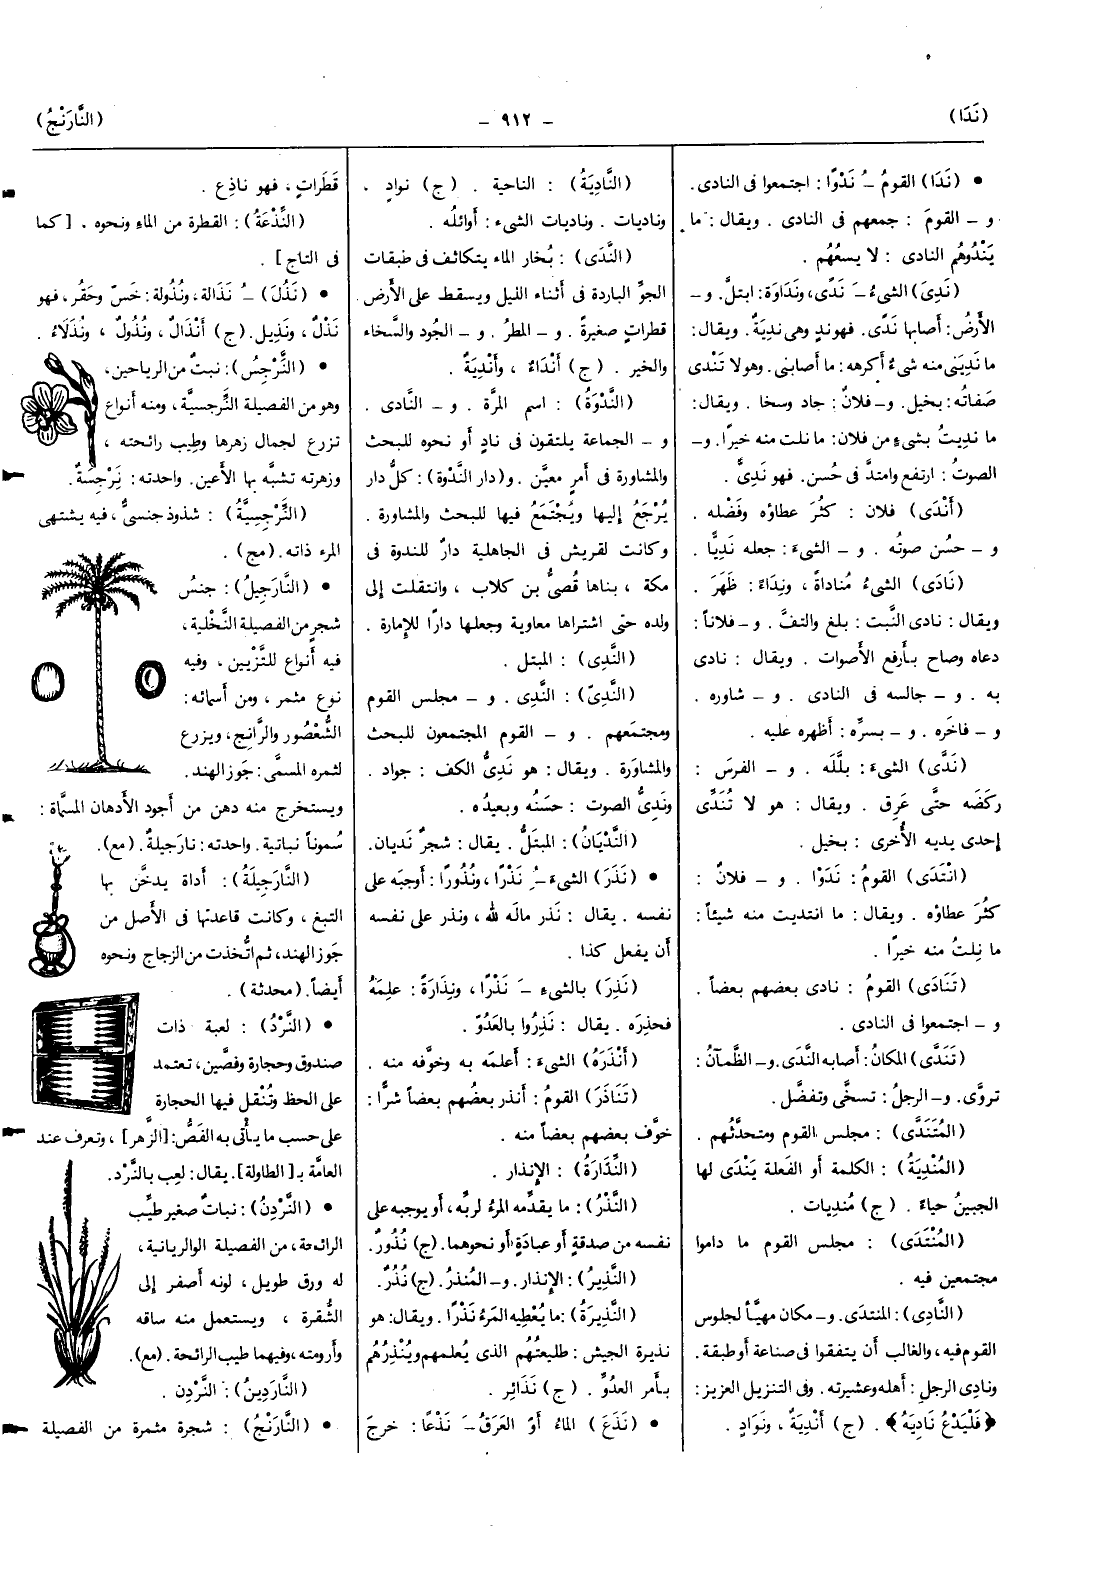 (نَدَا)
- ٩١٢ -
(النَّارَنْجُ)
• (نَدَا) القومُ ـُ نَدْوًا : اجتمعوا فى النادى.
و ـ القومَ : جمعهم فى النادى . ويقال : ما
يَنْدُوهُم النادى : لا يسعُهُم .
(نَدِىَ) الشىءُ ـَ نَدًى، ونَداوَة: ابتلَّ. و ـ
الأَرضُ: أصابها نَدًى. فهو ندٍ وهى نديَةٌ. ويقال:
ما نَدِيَنى منه شىءٌ أكرهه: ما أصابنى. وهو لا تَنْدى
صَفاتُه: بخيل. و ـ فلانٌ: جاد وسخا . ويقال:
ما نديتُ بشىءٍ من فلان: ما نلت منه خيرًا. و ـ
الصوتُ : ارتفع وامتدَّ فى حُسن. فهو نَدِىٌّ .
(أَنْدَى) فلان : كثُرَ عطاؤه وفَضْله .
و ـ حسُن صوتُه . و ـ الشىءَ : جعله نَدِيًّا .
(نَادَى) الشىءُ مُناداةً ، ونِدَاءً : ظَهَرَ .
ويقال : نادى النَّبت : بلغ والتفَّ . و ـ فلاناً :
دعاه وصاح بأرفع الأَصوات . ويقال : نادى
به . و ـ جالسه فى النادى . و ـ شاوره .
و ـ فاخَره . و ـ بسرِّه : أظهره عليه .
(نَدَّى) الشىءَ : بللَّه . و ـ الفرسَ :
ركَضَه حتَّى عَرِق . ويقال : هو لا تُنَدَّى
إحدى يديه الأُخرى : بخيل .
(انْتَدَى) القومُ : نَدَوْا . و ـ فلانٌ :
كثُرَ عطاؤه . ويقال : ما انتديت منه شيئاً :
ما نِلتُ منه خيرًا .
(تَنَادَى) القومُ : نادى بعضهم بعضاً .
و ـ اجتمعوا فى النادى .
(تَنَدَّى) المكانُ : أصابه النَّدَى. و ـ الظَّمآنُ :
تروَّى. و ـ الرجلُ : تسخَّى وتفضَّل .
(المُتَنَدَّى) : مجلس القوم ومتحدَّثُهم .
(المُنْدِيَةُ) : الكلمة أو الفَعلة يَنْدَى لها
الجبينُ حياءً . (ج) مُنديات .
(المُنْتَدَى) : مجلس القوم ما داموا
مجتمعين فيه .
(النَّادِى) : المنتدَى. و ـ مكان مهيَّأ لجلوس
القوم فيه، والغالب أن يتفقوا فى صناعة أو طبقة.
ونادِى الرجلِ : أهله وعشيرته. وفى التنزيل العزيز :
﴿فَلْيَدْعُ نَادِيَهُ﴾ . (ج) أَنْدِيَةٌ ، ونَوَادٍ .
(النَّادِيَةُ) : الناحية . (ج) نوادٍ ،
وناديات . وناديات الشىء : أوائلُه .
(النَّدَى) : بُخار الماء يتكاثف فى طبقات
الجوِّ الباردة فى أثناء الليل ويسقط على الأَرض
قطراتٍ صغيرةً . و ـ المطرُ . و ـ الجُود والسَّخاء
والخير . (ج) أَنْدَاءٌ ، وأَنْدِيَةٌ .
(النَّدْوَةُ) : اسم المرَّة . و ـ النَّادى .
و ـ الجماعة يلتقون فى نادٍ أو نحوه للبحث
والمشاورة فى أمرٍ معيَّن . و(دار النَّدْوة) : كلُّ دار
يُرْجَعُ إليها ويُجْتَمَعُ فيها للبحث والمشاورة .
وكانت لقريش فى الجاهلية دارٌ للندوة فى
مكة ، بناها قُصىُّ بن كلاب ، وانتقلت إلى
ولده حتى اشتراها معاوية وجعلها دارًا للإمارة .
(النَّدِى) : المبتل .
(النَّدِىّ) : النَّدِى . و ـ مجلس القوم
ومجتمَعهم . و ـ القوم المجتمعون للبحث
والمشاوَرة . ويقال : هو نَدِىُّ الكف : جواد .
ونَدِىُّ الصوت : حسَنُه وبعيدُه .
(النَّدْيَانُ) : المبتلُّ . يقال : شجرٌ نَديان.
• (نَذَرَ) الشىءَ ـُِ نَذْرًا ، ونُذُورًا : أوجبَه على
نفسه . يقال : نَذر مالَه لله ، ونذر على نفسه
أن يفعل كذا .
(نَذِرَ) بالشىءِ ـَ نَذْرًا ، ونِذَارَةً : علِمَهُ
فحذِرَه . يقال : نَذِرُوا بالعَدُوِّ .
(أَنْذَرَهُ) الشىءَ : أعلمَه به وخوَّفه منه .
(تَنَاذَرَ) القومُ : أنذر بعضُهم بعضاً شرًّا :
خوَّف بعضهم بعضاً منه .
(النِّذَارَةُ) : الإنذار .
(النَّذْرُ) : ما يقدِّمه المرءُ لربِّه، أو يوجبه على
نفسه من صدقةٍ أو عبادَةٍ أو نحوهما. (ج) نُذُورٌ.
(النَّذِيرُ) : الإنذار. و ـ المُنذرُ. (ج) نُذُرٌ.
(النَّذِيرَةُ) : ما يُعْطِيه المَرءُ نَذْرًا . ويقال : هو
نذيرة الجيش : طليعتُهُم الذى يُعلمهم ويُنْذِرُهُم
بأمر العدُوِّ . (ج) نَذَائِر .
• (نَذَعَ) الماءُ أَوْ العَرَقُ ـَ نَذْعًا : خرجَ
قَطَراتٍ ، فهو ناذِع .
(النَّذْعَةُ) : القطرة من الماءِ ونحوه . [كما
فى التاج] .
• (نَذُلَ) ـُ نَذَالة، ونُذُولة : خَسّ وحَقُر، فهو
نَذْلٌ ، ونَذِيل. (ج) أَنْذَالٌ ، ونُذُولٌ ، ونُذَلَاءُ .
• (النَّرْجِسُ) : نبتٌ من الرياحين،
وهو من الفصيلة النَّرجسيَّة ، ومنه أنواع
تزرع لجمال زهرها وطِيب رائحته ،
وزهرته تشبَّه بها الأَعين. واحدته : نَرْجِسَةٌ.
(النَّرْجِسِيَّةُ) : شذوذ جنسىٌّ ، فيه يشتهى
المرء ذاته . (مج) .
• (النَّارَجِيلُ) : جنسُ
شجر من الفصيلة النَّخْلية ،
فيه أنواع للتَّزْيين ، وفيه
نوع مثمر ، ومن أسمائه :
الشُّعْصُور والرَّانِج، ويزرع
لثمره المسمَّى : جَوز الهند.
ويستخرج منه دهن من أجود الأَدهان المسمَّاة :
سُموناً نباتية. واحدته : نارَجيلةٌ . (مع).
(النَّارَجِيلَةُ) : أداة يدخَّن بها
التبغ ، وكانت قاعدتها فى الأَصل من
جَوز الهند، ثم اتُّخذت من الزجاج ونحوه
أيضاً. (محدثة) .
• (النَّرْدُ) : لعبة ذات
صندوق وحجارة وفصَّين، تعتمد
على الحظ وتُنْقل فيها الحجارة
على حسب ما يأتى به الفَصُّ: [الزَّهر] ، وتعرف عند
العامَّة بـ [الطاولة]. يقال: لعِب بالنَّرْد.
• (النَّرْدِنُ) : نباتٌ صغير طيِّب
الرائحة، من الفصيلة الواليريانية،
له ورق طويل ، لونه أصفر إلى
الشُّقرة ، ويستعمل منه ساقه
وأرومته، وفيهما طيب الرائحة. (مع).
(النَّارَدِينُ) : النَّرْدِن .
• (النَّارَنْجُ) : شجرة مثمرة من الفصيلة